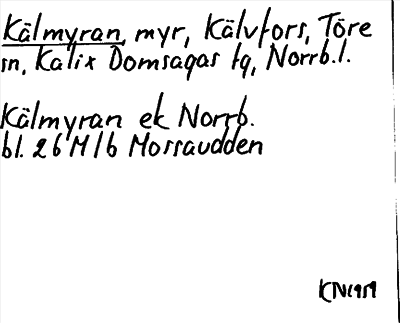 Kälmyran, myr, Kälvfors, Töre
sn, Kalix Domsagas tg, Norrb.l.
Kälmyran ek Norrb.
bl. 26 M 1b Mossaudden
KN 1959